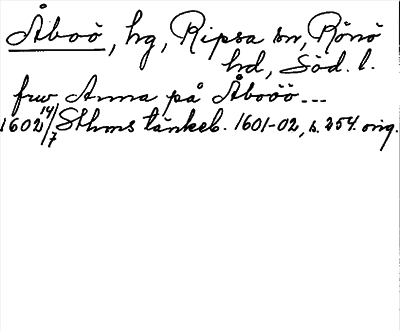 Åboö, hg, Ripsa sn, Rönö
hd, Söd. l.
frw Anna på Åbooö...
1602 14/7 Sthms tänkeb. 1601-02, s. 254. orig.